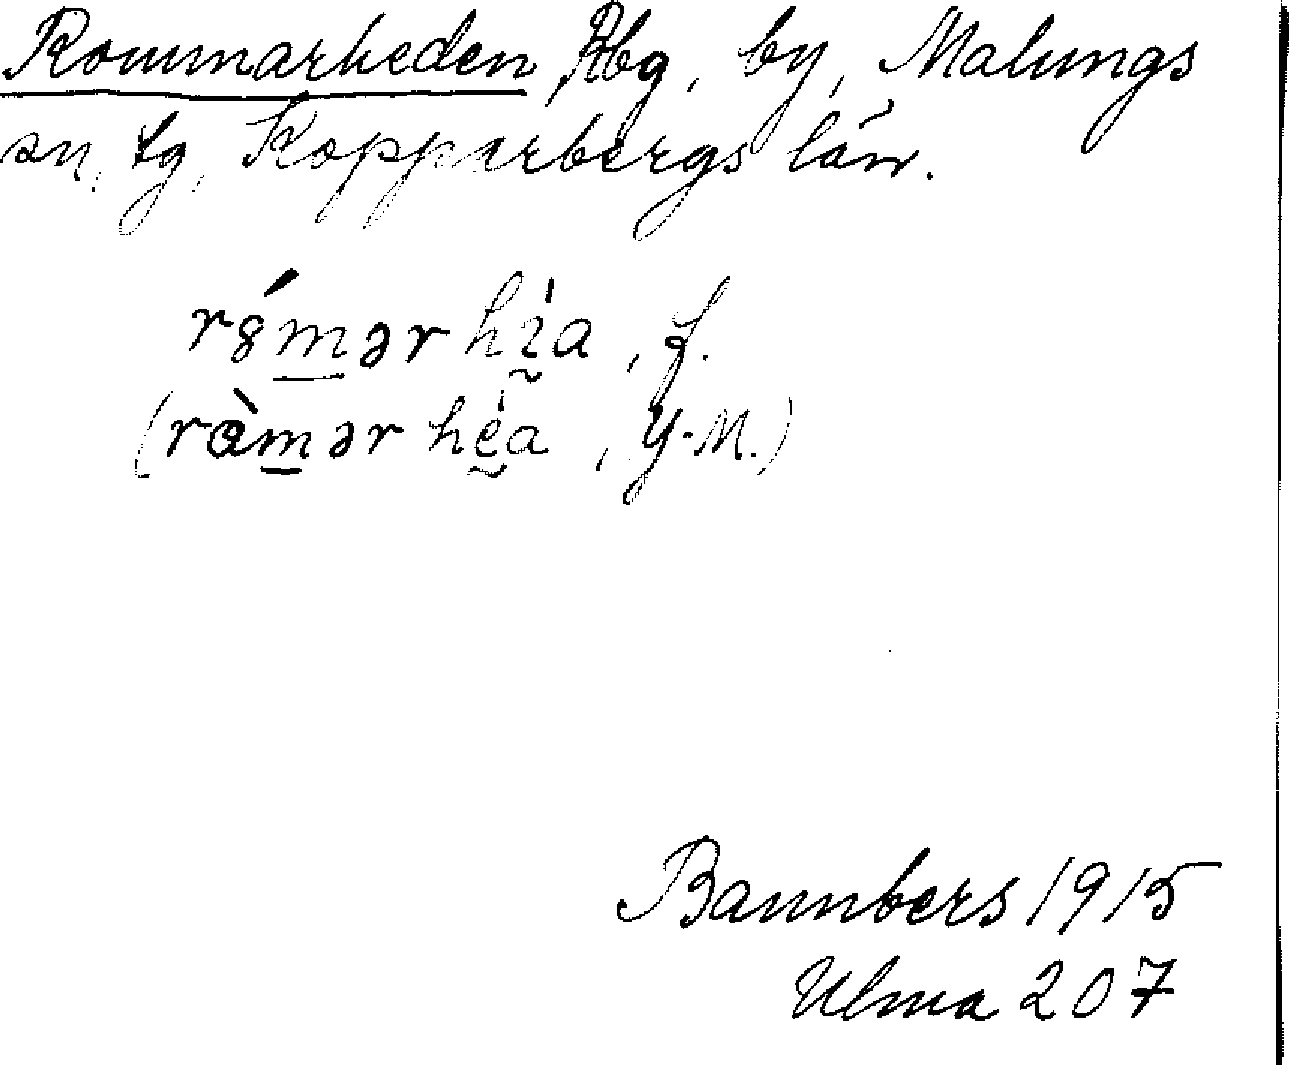 Rommarheden Rbg, by, Malungs
sn, tg, Kopparbergs län.
hı̰̀a, f.
(ràm̲ər hḛ̀a, Y-M.)
Bannbers 1915
Ulma 207